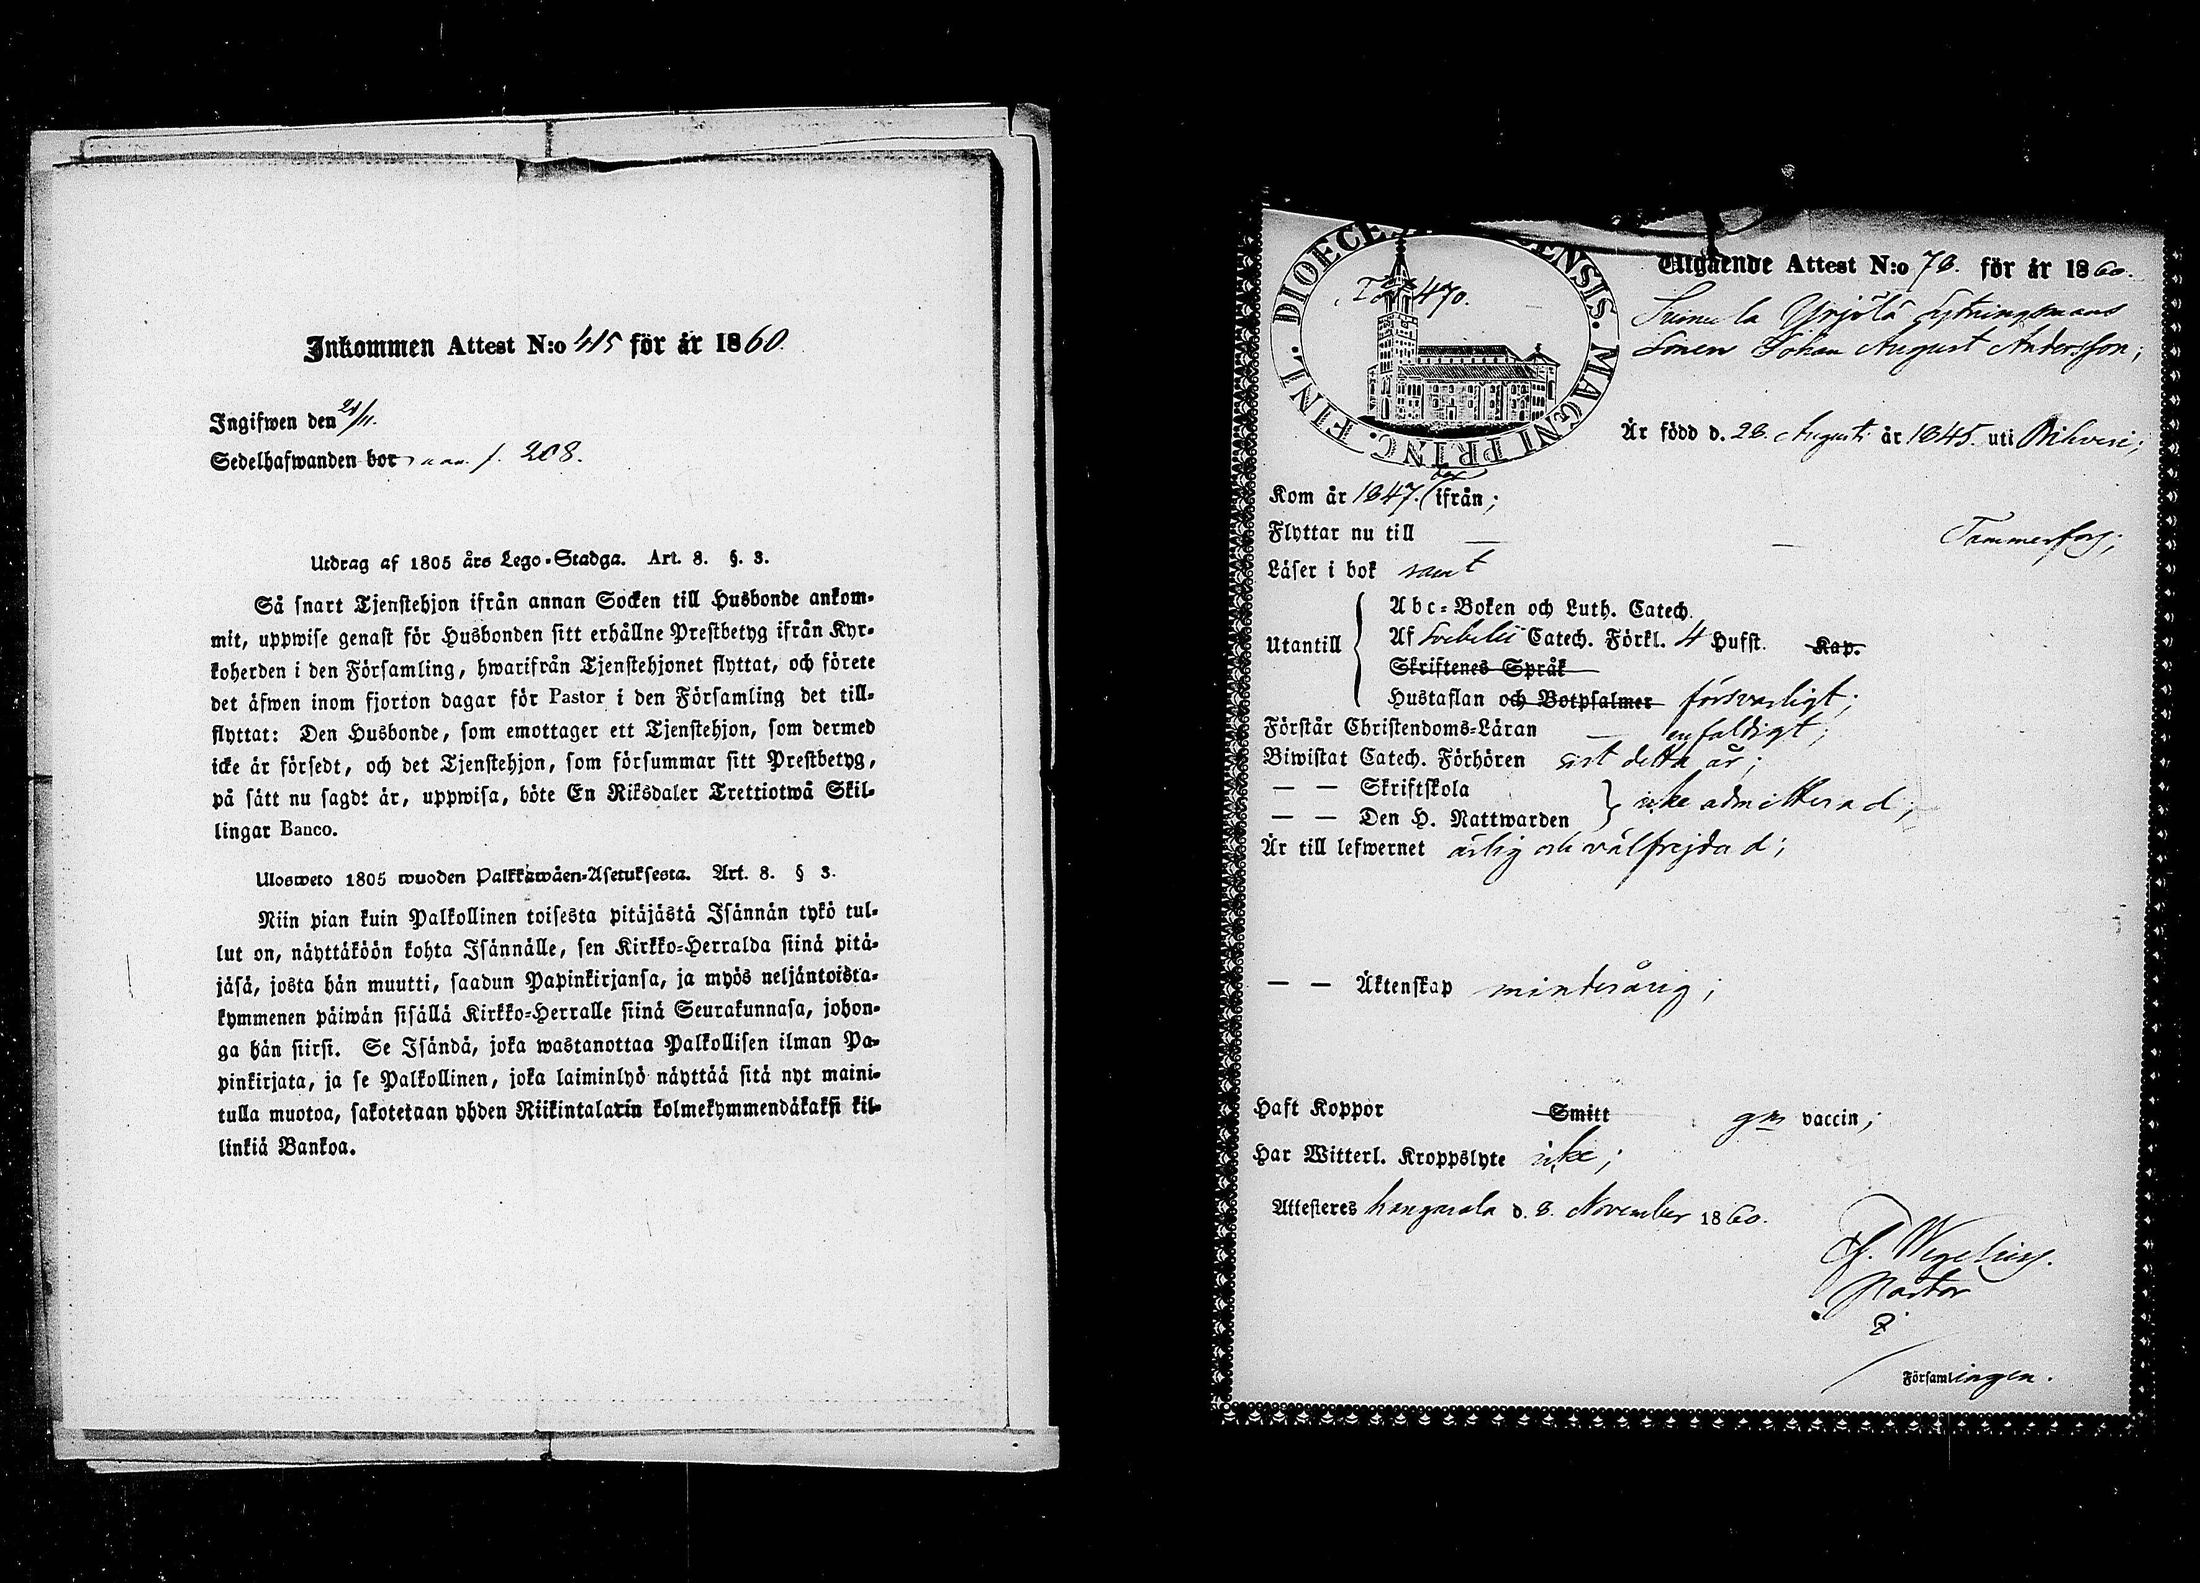 Inkommen Attest N:o 415 för år 1860.
Ingifwen den 21/11.
Sedelhafwanden bor f. 208.
Utdrag af 1805 års Lego-Stadga. Art. 8. §. 3.
Så snart Tjenstehjon ifrån annan Socken till Husbonde ankom-
mit, uppwise genast för Husbonden sitt erhållne Prestbetyg ifrån Kyr-
koherden i den Församling, hwarifrån Tjenstehjonet flyttat, och förete
det äfwen inom fjorton dagar för Pastor i den Församling det till-
flyttat: Den Husbonde, som emottager ett Tjenstehjon, som dermed
icke är försedt, och det Tjenstehjon, som försummar sitt Prestbetyg,
på sätt nu sagdt är, uppwisa, böte En Riksdaler Trettiotwå Skil-
lingar Banco.
Ulosweto 1805 wuoden Palkkawäen-Asetuksesta. Art. 8. § 3.
Niin pian kuin Palkollinen toisesta pitäjästä Isännän tykö tul-
lut on, näyttäköön kohta Isännälle, sen Kirkko-Herralda siinä pitä-
jäsä, josta hän muutti, saadun Papinkirjansa, ja myös neljäntoista-
kymmenen päiwän sisällä Kirkko-Herralle siinä Seurakunnasa, johon-
ga hän siirsi. Se Isändä, joka wastanottaa Palkollisen ilman Pa-
pinkirjata, ja se Palkollinen, joka laiminlyö näyttää sitä nyt maini-
tulla muotoa, sakotetaan yhden Riikintalarin kolmekymmendäkaksi kil-
linkiä Bankoa.
FINL. DIOECE ENSIS. MAGNI PRINC.
470.
Utgående Attest N:o 78. för år 1860.
Yrjölä Sytningsmans
Sonen Johan August Andersson;
Är född d. 28. Augusti år 1845. uti Orihvesi;
Kom år 1847. ifrån;
Flyttar nu till — — Tammerfors;
Läser i bok samt
Utantill
Abc-Boken och Luth. Catech.
Af Svebelii Catech. Förkl. 4 Hufst. Kap.
Skriftenes Språk
Hustaflan och Botpsalmer försvarligt;
Förstår Christendoms-Läran — enfaldigt;
Biwistat Catech. Förhören sist detta år;
— — Skriftskola
— — Den H. Nattwarden icke admitterad;
Är till lefwernet ärlig och välfrejdad;
— — Äktenskap minderårig;
Haft Koppor Smitt gm vaccin;
Har Witterl. Kroppslyte icke;
Attesteres Kangasala d. 8. November 1860.
Wegelius.
Pastor
i
Församlingen.